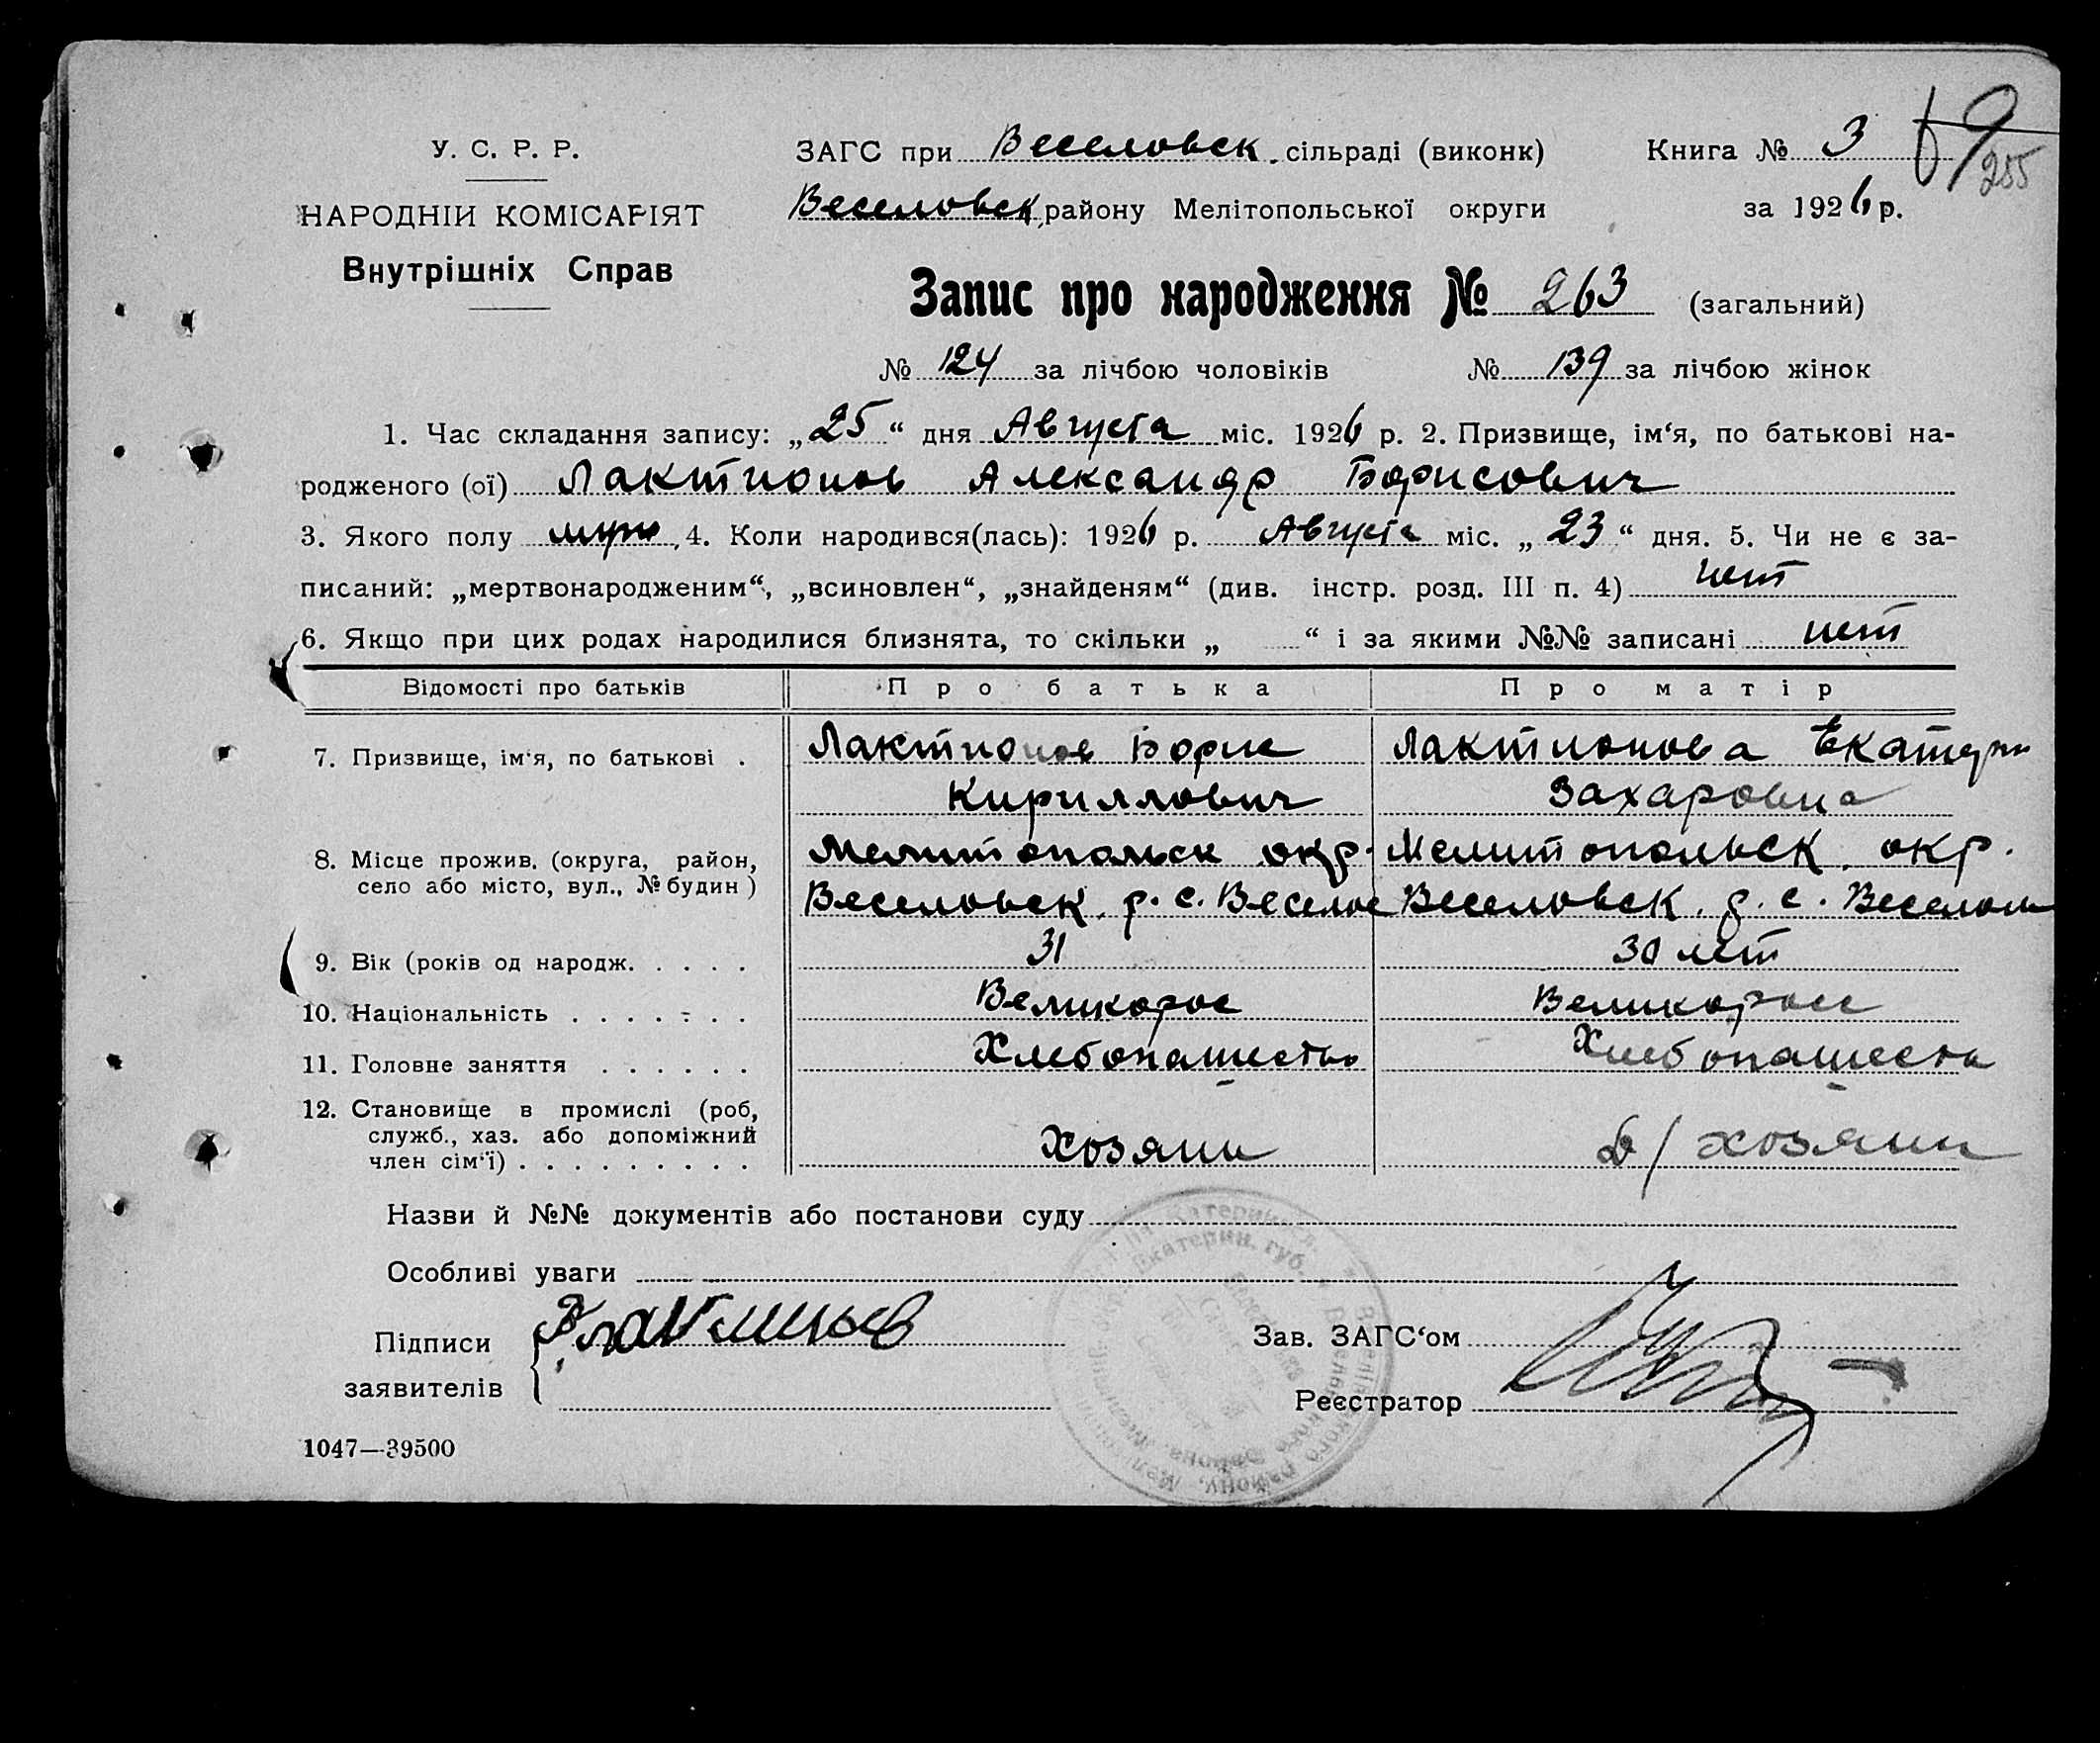 У. С. Р. Р.
НАРОДНІЙ КОМІСАРІЯТ
Внутрішніх Справ
ЗАГС при Веселовск. сільраді (виконк)
Веселовск. району Мелітопольської округи
Книга № 3
69
255
за 1926 р.
Запис про народження № 263 (загальний)
№ 124 за лічбою чоловіків № 139 за лічбою жінок
1. Час складання запису: „25“ дня Августа міс. 1926 р. 2. Призвище, ім‘я, по батькові на-
родженого (ої) Лактионов Александр Борисович
3. Якого полу муж. 4. Коли народився(лась): 1926 р. Августа міс. „23“ дня. 5. Чи не є за-
писаний: „мертвонародженим“, „всиновлен“, „знайденям“ (див. інстр. розд. III п. 4) нет
6. Якщо при цих родах народилися близнята, то скільки „ “ і за якими №№ записані нет
Відомості про батьків Про батька Про матір
7. Призвище, ім‘я, по батькові . Лактионов Борис Лактионова Екатери
Кириллович Захаровна
8. Місце прожив. (округа, район, Мелитопольск окр. Мелитопольск. окр.
село або місто, вул., № будин) Веселовск. р. с. Веселое Веселовск. р. с. Веселое
9. Вік (років од народж. . . . . 31 30 лет
10. Національність . . . . . . . Великорос Великоросс
11. Головне заняття . . . . . . Хлебопашество Хлебопашеств
12. Становище в промислі (роб,
служб., хаз. або допоміжний Хозяин Д/хозяин
член сім‘ї) . . . . . . . . .
Назви й №№ документів або постанови суду
Особливі уваги
Підписи
заявителів
Зав. ЗАГС‘ом
Реєстратор
1047—39500
Екатерин. губ.